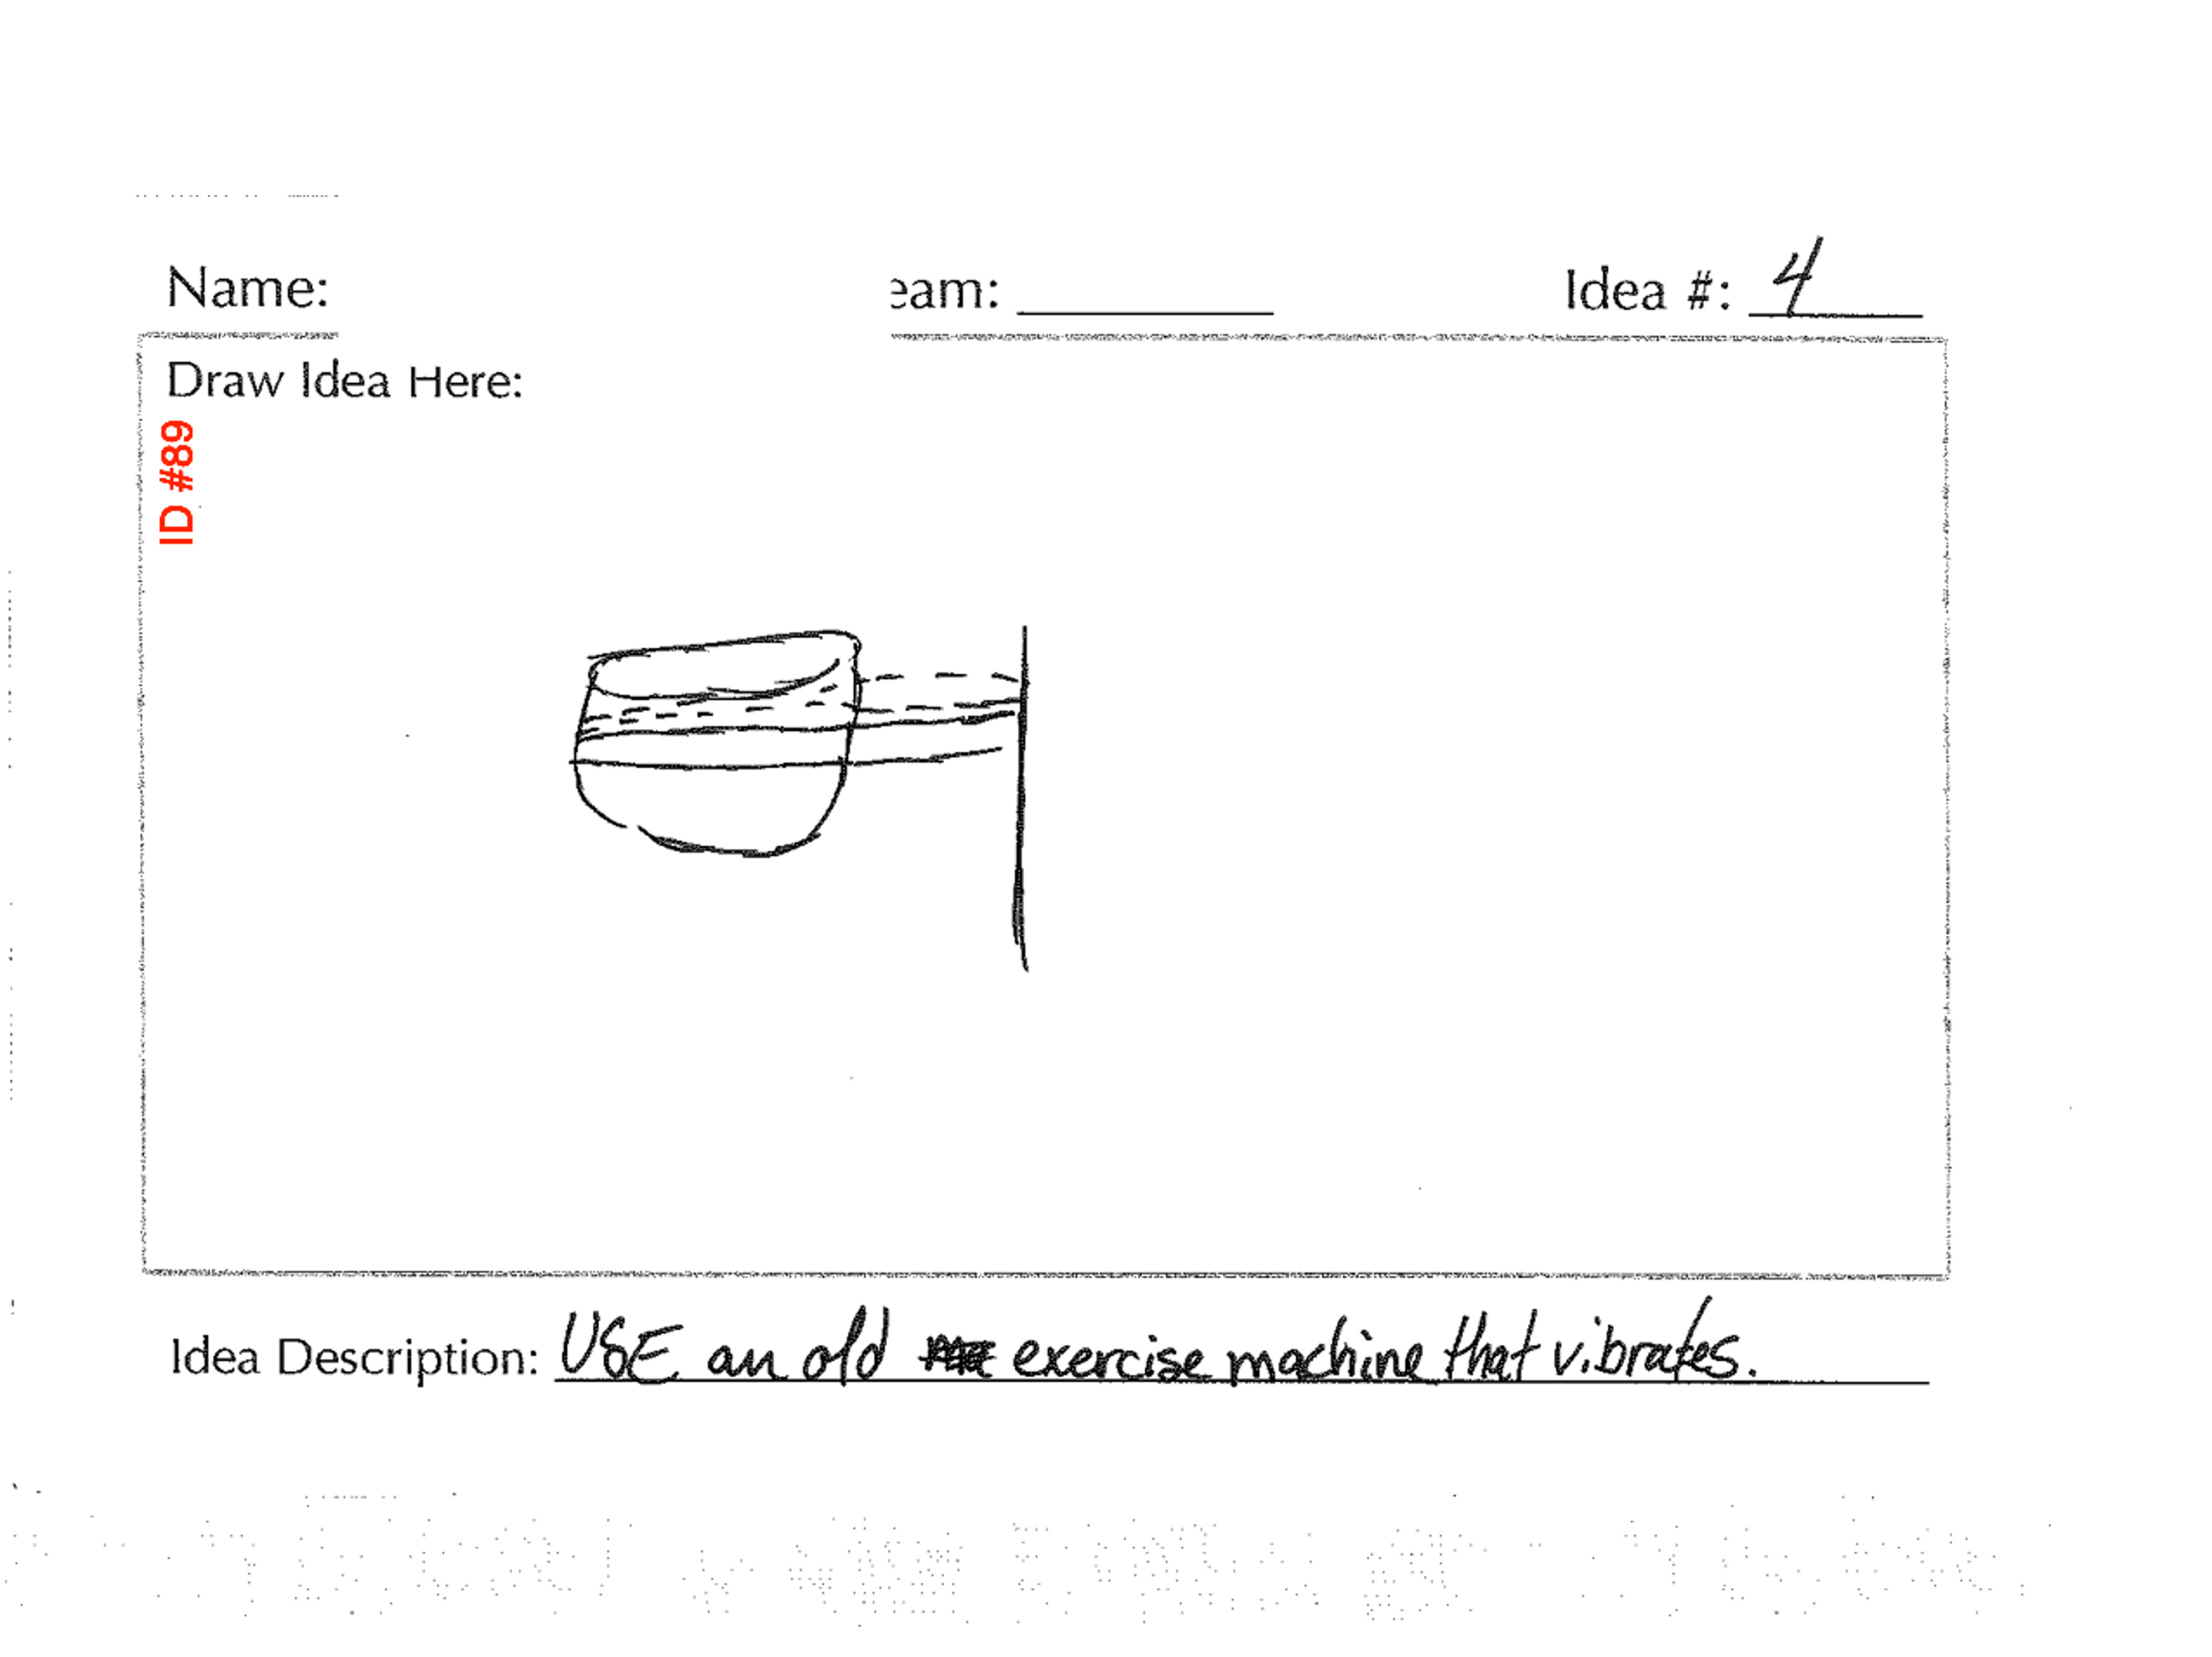 Name: eam: Idea #: 4
Draw Idea Here:
ID #89
Idea Description: USE an old exercise machine that vibrates.